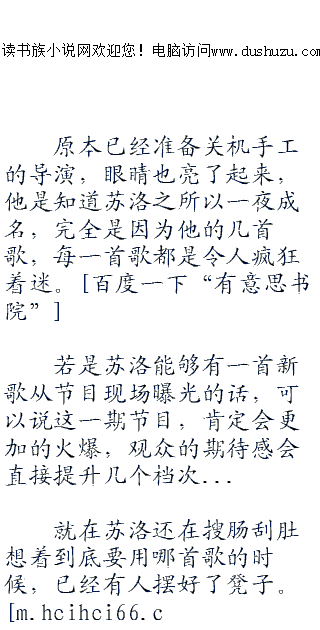 读书族小说网欢迎您！电脑访问www.dushuzu.com
原本已经准备关机手工
的导演，眼睛也亮了起来，
他是知道苏洛之所以一夜成
名，完全是因为他的几首
歌，每一首歌都是令人疯狂
着迷。[百度一下“有意思书
院”]
若是苏洛能够有一首新
歌从节目现场曝光的话，可
以说这一期节目，肯定会更
加的火爆，观众的期待感会
直接提升几个档次...
就在苏洛还在搜肠刮肚
想着到底要用哪首歌的时
候，已经有人摆好了凳子。
[m.hcihci66.c